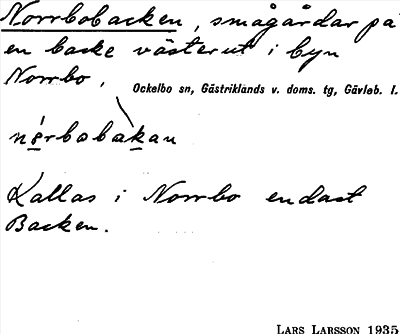 Norrbobacken, smågårdar på
en backe västerut i byn
Norrbo.
Ockelbo sn, Gästriklands v. doms. tg, Gävleb. l.
nǿrbobakan
Kallas i Norrbo endast
Backen.
LARS LARSSON 1935